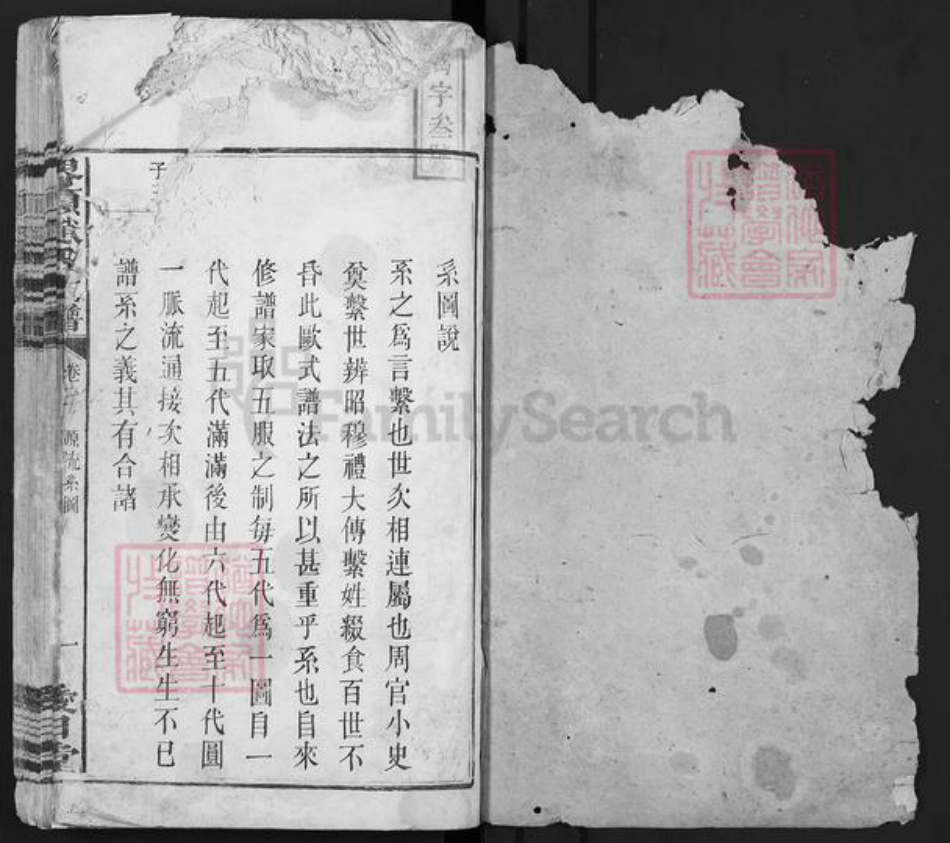 字叁
系圖說
系之爲言繫也世次相連屬也周官小史
奠繫世辨昭穆禮大傳繫姓綴食百世不
昏此歐式譜法之所以甚重乎系也自來
修譜家取五服之制每五代爲一圖自一
代起至五代滿滿後由六代起至十代圓
一脈流通接次相承變化無窮生生不已
譜系之義其有合諸
子
譜
卷
源流系圖
一
FamilySearch